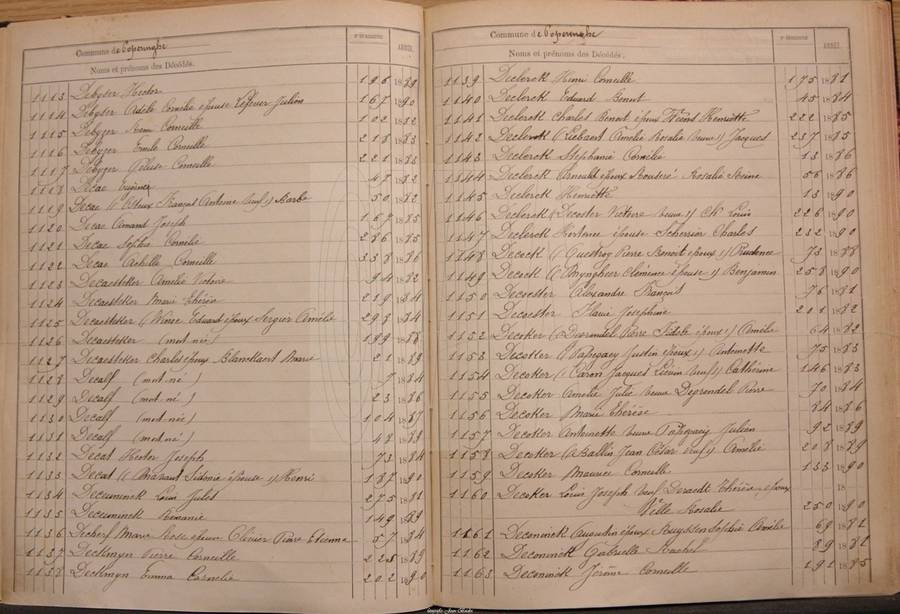 Commune de Poperinghe
Noms et prénoms des Décédés.
ANNÉE
1113 Debyser Hector 196 1889
1114 Debyser Adèle Cornélie épouse Lefever Julien 167 1890
1115 Debyser Remi Corneille 102 1882
1116 Debyser Emile Corneille 218 1883
1117 Debyser Corneille 221 1883
1118 Decae 47 1882
1119 Decae François Antoine veuf Barbe 50 1882
1120 Decae Amand Joseph 167 1885
1121 Decae Sophie Cornélie 286 1885
1122 Decae Achille Corneille 338 1886
1123 Decaesteker Amélie Victoire 94 1882
1124 Decaesteker Marie Thérèse 219 1884
1125 Decaesteker Edouard époux Sergier Amélie 293 1884
1126 Decaesteker (mort-né) 199 1888
1127 Decaesteker Charles époux Blanckaert Marie 21 1889
1128 Decalf (mort-né) 7 1884
1129 Decalf (mort-né) 23 1886
1130 Decalf (mort-née) 104 1887
1131 Decalf (mort-né) 48 1888
1132 Decat Hector Joseph 73 1884
1133 Decat (Brabant Sidonie épouse) Henri 187 1890
1134 Deceuninck Louis Jules 275 1881
1135 Deceuninck Romanie 149 1889
1136 Decherf Marie Rose épouse Ollivier Pierre Etienne 57 1884
1137 Deckmyn Pierre Corneille 228 1889
1138 Deckmyn Emma Cornélie 202 1890
Commune de Poperinghe
Noms et prénoms des Décédés.
ANNÉE
1139 Declerck Henri Corneille 175 1881
1140 Declerck Eduard Benoit 45 1884
1141 Declerck Charles Benoit époux Henriette 222 1885
1142 Declerck (Liebaert Amélie Rosalie veuve) Jacques 237 1885
1143 Declerck Stephanie Cornélie 13 1886
1144 Declerck Arnould époux Rosalie Reine 56 1886
1145 Declerck Henriette 13 1890
1146 Declerck (Decoster Victoire veuve) Ch Louis 226 1890
1147 Declerck Hortence épouse Scherrier Charles 232 1890
1148 Decock (Questroy Pierre Benoit époux) Prudence 73 1888
1149 Decock (Clemence épouse) Benjamin 258 1890
1150 Decoester Alexandre François 76 1881
1151 Decoester Marie Joséphine 201 1882
1152 Decoker (Degrendel Pierre Fidèle époux) Amélie 64 1882
1153 Decoker (Papegaey Justin époux) Antoinette 75 1883
1154 Decoker (Caron Jacques Lievin veuf) Catherine 146 1883
1155 Decoker Amélie Julie veuve Degrendel Pierre 70 1884
1156 Decoker Marie Thérèse 84 1886
1157 Decoker Antoinette veuve Papegaey Julien 92 1889
1158 Decoker (Ballin Jean César veuf) Amélie 208 1889
1159 Decoker Maurice Corneille 133 1890
1160 Decoker Louis Joseph veuf Deraedt Thérèse époux 18
Ville Rosalie 250 1890
1161 Deconinck Augustin époux Ruyssen Sophie Amélie 69 1882
1162 Deconinck Gabrielle Rachel 89 1882
1163 Deconinck Jérôme Corneille 191 1885